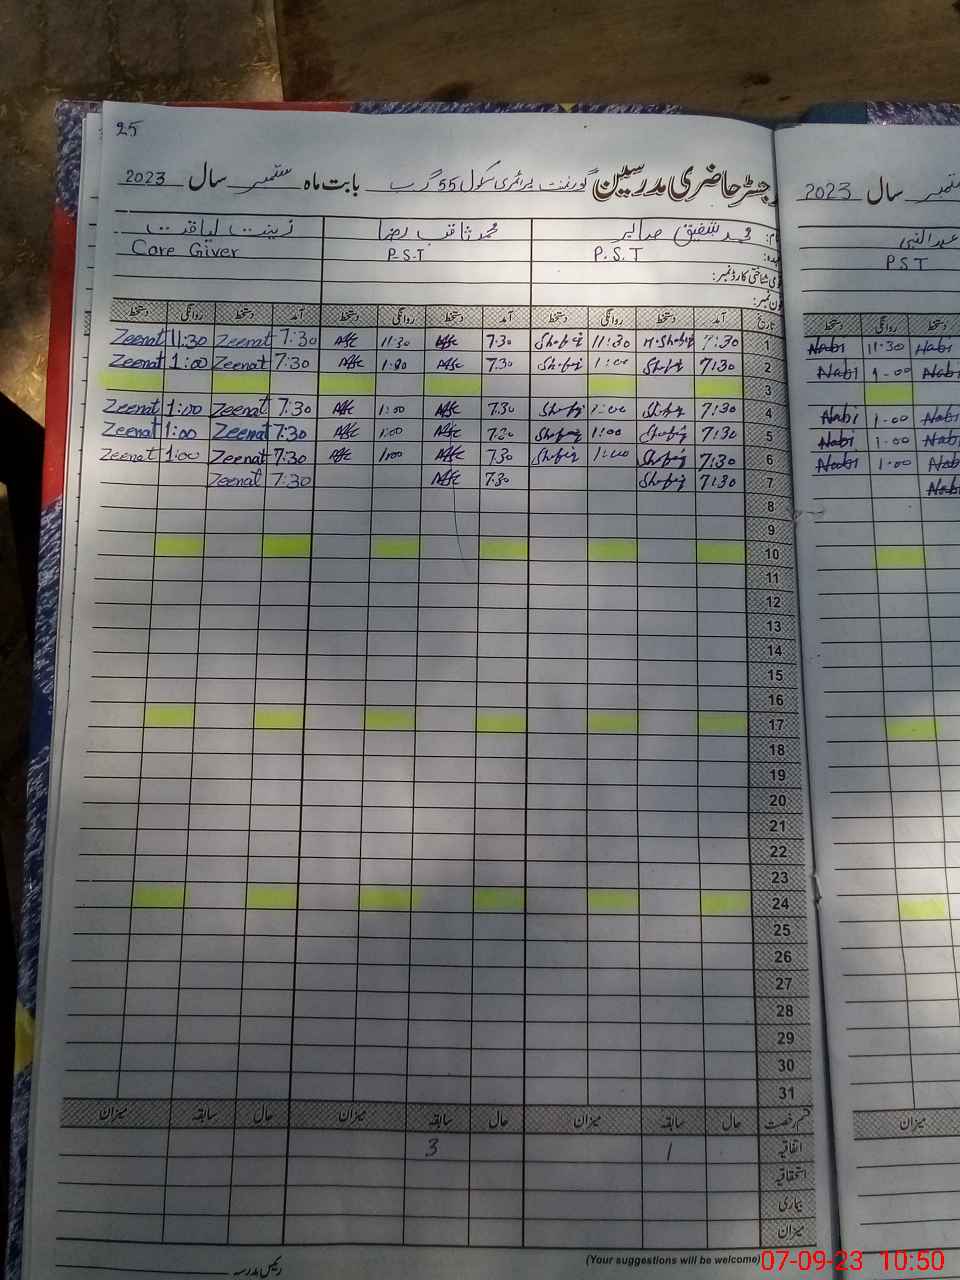 25
رجسٹر حاضری مدرسین گورنمنٹ پرائمری سکول 55 گ ب بابت ماہ ستمبر سال 2023
نام: محمد شفیق صابر محمد ثاقب رضا زینت لیاقت
عہدہ: P.S.T P.S.T Care Giver
قومی شناختی کارڈ نمبر:
فون نمبر:
تاریخ آمد دستخط روانگی دستخط آمد دستخط روانگی دستخط آمد دستخط روانگی دستخط
1 7:30 M.Shafiq 11:30 Shafiq 7.30 11:30 7:30 Zeenat 11:30 Zeenat
2 7:30 Shafiq 1:00 Shafiq 7.30 1:00 7:30 Zeenat 1:00 Zeenat
3
4 7:30 Shafiq 1:00 Shafiq 7.30 1:00 7:30 Zeenat 1:00 Zeenat
5 7:30 Shafiq 1:00 Shafiq 7.30 1:00 7:30 Zeenat 1:00 Zeenat
6 7:30 Shafiq 1:00 Shafiq 7.30 1:00 7:30 Zeenat 1:00 Zeenat
7 7:30 Shafiq 7.30 7:30 Zeenat
8
9
10
11
12
13
14
15
16
17
18
19
20
21
22
23
24
25
26
27
28
29
30
31
قسم رخصت حال سابقہ میزان حال سابقہ میزان حال سابقہ میزان
اتفاقیہ 1 3
استحقاقیہ
بیماری
میزان
رئیس مدرسہ
(Your suggestions will be welcome)
سال 2023
عبدالنبی
PST
دستخط روانگی دستخط
Nabi 11-30 Nabi
Nabi 1-00 Nabi
Nabi 1-00 Nabi
Nabi 1-00 Nabi
Nabi 1-00 Nabi
Nabi
میزان
07-09-23 10:50